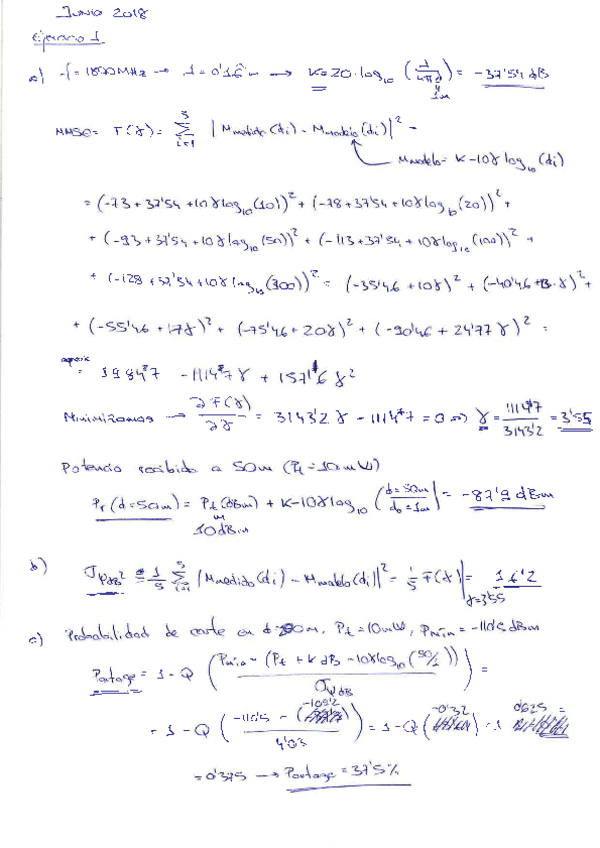 Junio 2018
Ejercicio 1
a) f = 1800MHz → λ = 0'16̂ m → K = 20·log₁₀ (λ/4πd) = -37'54 dB
1m
MMSE = F(γ) = Σ_{i=1}^{5} |Mmedido(di) - Mmodelo(di)|² =
Mmodelo = K-10γlog₁₀(di)
= (-73+37'54+10γlog₁₀(10))² + (-78+37'54+10γlog₁₀(20))² +
+ (-93+37'54+10γlog₁₀(50))² + (-113+37'54+10γlog₁₀(100))² +
+ (-128+37'54+10γlog₁₀(300))² = (-35'46+10γ)² + (-40'46+13·γ)² +
+ (-55'46+17γ)² + (-75'46+20γ)² + (-90'46+24'77γ)² =
= 19847 - 11147γ + 1571'6γ²
Minimizamos → ∂F(γ)/∂γ = 3143'2γ - 11147 = 0 => γ = 11147/3143'2 = 3'55
Potencia recibida a 50m (Pt=10mW)
Pr(d=50m) = Pt(dBm) + K-10γlog₁₀ (d=50m/d₀=1m) = -87'9 dBm
10dBm
b) σψdB² = 1/5 Σ_{i=1}^{5} |Mmedido(di) - Mmodelo(di)|² = 1/5 F(γ)|γ=3'55 = 16'2
c) Probabilidad de corte en d= m, Pt=10mW, Pmin = -110'5 dBm
Poutage = 1 - Q (Pmin - (Pt + K dB - 10γlog₁₀(50/1)) / σψdB) =
= 1 - Q (-110'5 - (-109'2) / 4'03) = 1 - Q(-0'32) = 1 - 0'625 =
= 0'375 → Poutage = 37'5%